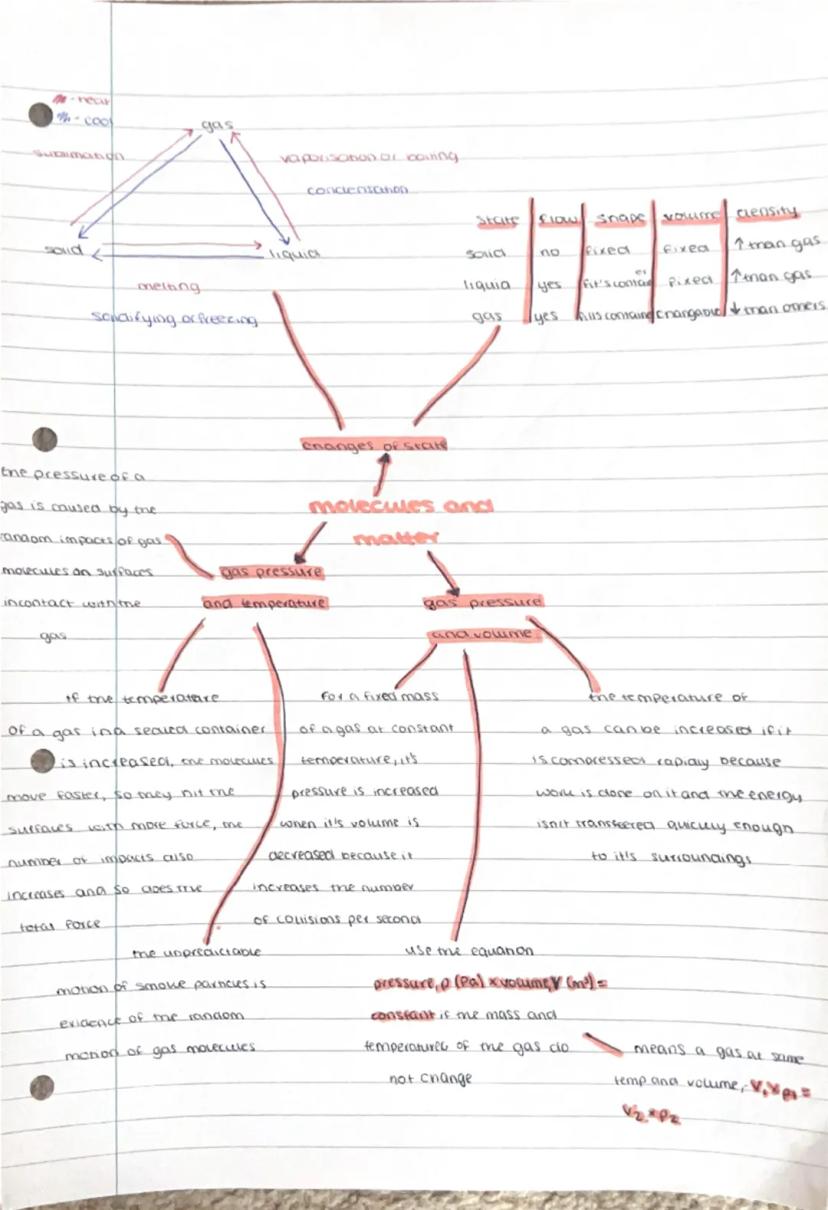 m - heat
m - cool
gas
sublimation
vaporisation or boiling
condensation
solid
liquid
melting
solidifying or freezing
state flow shape volume density
solid no fixed fixed ↑ than gas
liquid yes fit's container fixed ↑ than gas
gas yes fills container changable ↓ than others
changes of state
molecules and
matter
the pressure of a
gas is caused by the
random impacts of gas
molecules on surfaces
incontact with the
gas
gas pressure
and temperature
gas pressure
and volume
if the temperature
of a gas in a sealed container
is increased, the molecules
move faster, so they hit the
surfaces with more force, the
number of impacts also
increases and so does the
total force
for a fixed mass
of a gas at constant
temperature, it's
pressure is increased
when it's volume is
decreased because it
increases the number
of collisions per second
the temperature of
a gas can be increased if it
is compressed rapidly because
work is done on it and the energy
isn't transfered quickly enough
to it's surroundings
the unpredictable
motion of smoke particles is
evidence of the random
motion of gas molecules
use the equation
pressure, p (Pa) x volume, V (m³) =
constant if the mass and
temperature of the gas do
not change
means a gas at same
temp and volume, V₁ x p₁ =
V₂ x p₂